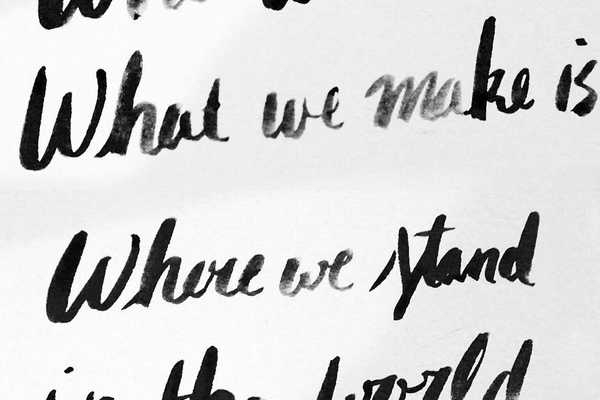 What we make is
Where we stand
in the world